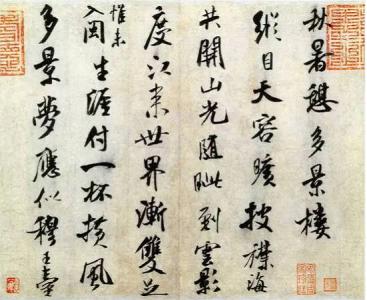 秋暑憩多景樓
縱目天容曠披襟海
共開山光隨眦到雲影
度江來世界漸雙足
惟未
入閩生涯付一杯橫風
多景夢應似穆王臺